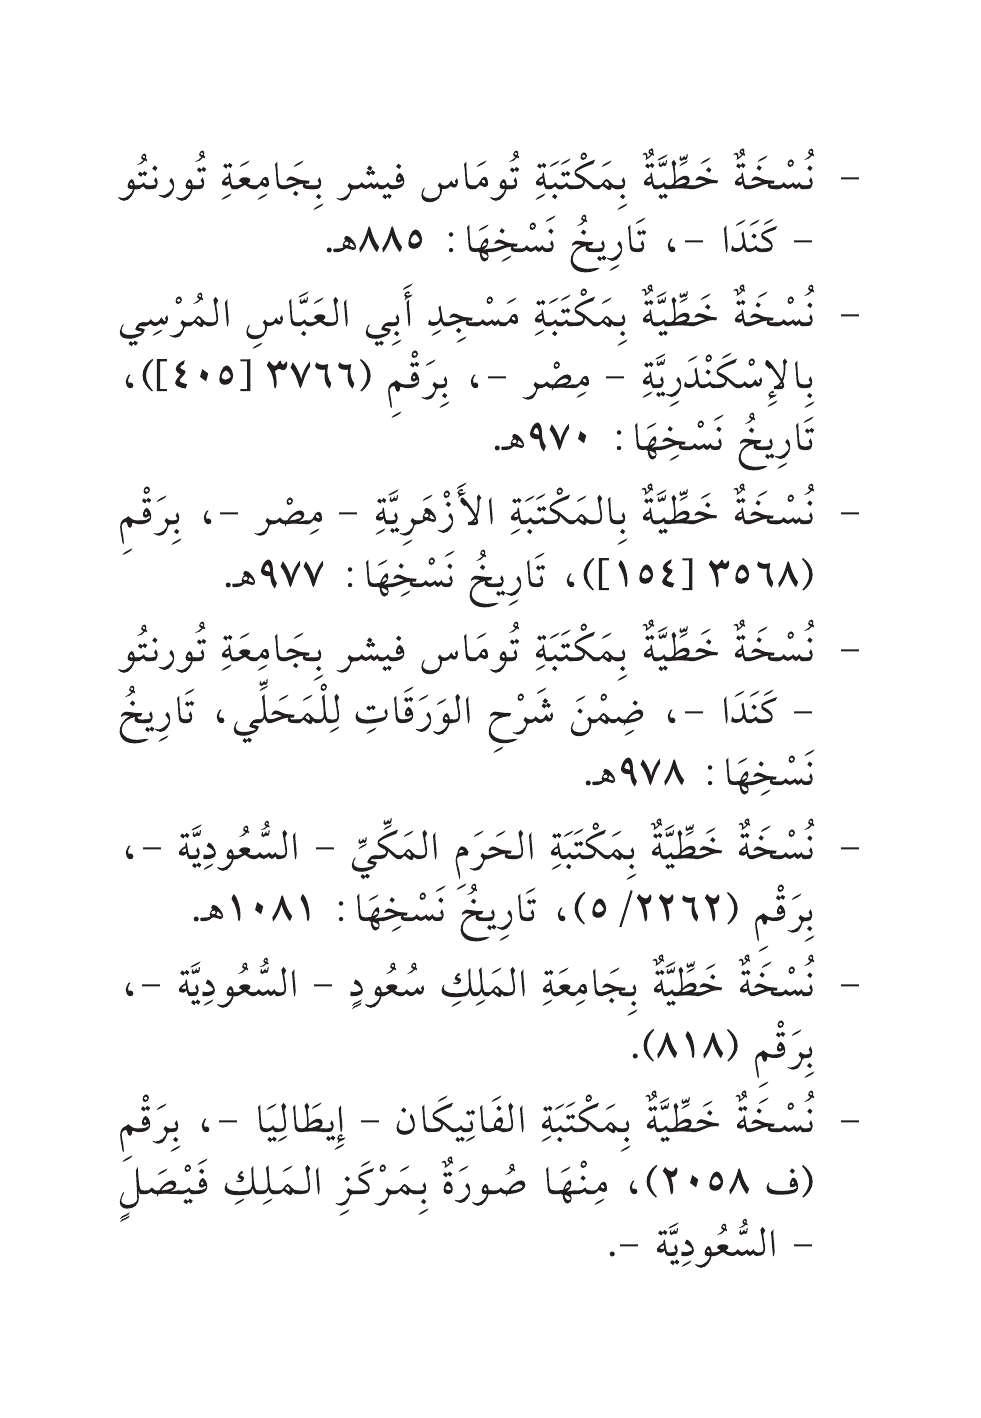 - نُسْخَةٌ خَطِّيَّةٌ بِمَكْتَبَةِ تُومَاس فيشر بِجَامِعَةِ تُورنتُو
- كَنَدَا -، تَارِيخُ نَسْخِهَا: ٨٨٥هـ.
- نُسْخَةٌ خَطِّيَّةٌ بِمَكْتَبَةِ مَسْجِدِ أَبِي العَبَّاسِ المُرْسِي
بِالإِسْكَنْدَرِيَّةِ - مِصْر -، بِرَقْمِ (٣٧٦٦ [٤٠٥])،
تَارِيخُ نَسْخِهَا: ٩٧٠هـ.
- نُسْخَةٌ خَطِّيَّةٌ بِالمَكْتَبَةِ الأَزْهَرِيَّةِ - مِصْر -، بِرَقْمِ
(٣٥٦٨ [١٥٤])، تَارِيخُ نَسْخِهَا: ٩٧٧هـ.
- نُسْخَةٌ خَطِّيَّةٌ بِمَكْتَبَةِ تُومَاس فيشر بِجَامِعَةِ تُورنتُو
- كَنَدَا -، ضِمْنَ شَرْحِ الوَرَقَاتِ لِلْمَحَلِّي، تَارِيخُ
نَسْخِهَا: ٩٧٨هـ.
- نُسْخَةٌ خَطِّيَّةٌ بِمَكْتَبَةِ الحَرَمِ المَكِّيِّ - السُّعُودِيَّة -،
بِرَقْمِ (٢٢٦٢/ ٥)، تَارِيخُ نَسْخِهَا: ١٠٨١هـ.
- نُسْخَةٌ خَطِّيَّةٌ بِجَامِعَةِ المَلِكِ سُعُودٍ - السُّعُودِيَّة -،
بِرَقْمِ (٨١٨).
- نُسْخَةٌ خَطِّيَّةٌ بِمَكْتَبَةِ الفَاتِيكَان - إِيطَالِيَا -، بِرَقْمِ
(ف ٢٠٥٨)، مِنْهَا صُورَةٌ بِمَرْكَزِ المَلِكِ فَيْصَلٍ
- السُّعُودِيَّة -.